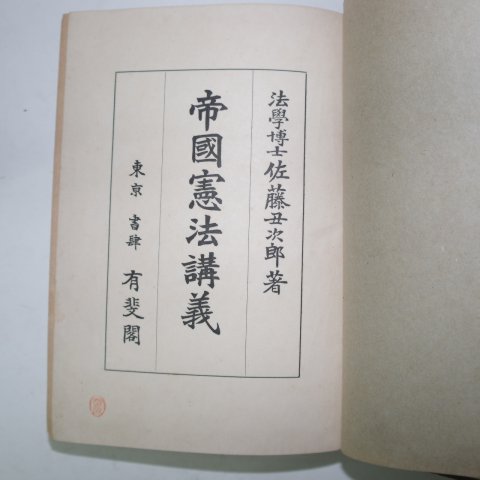 法學博士 佐藤丑次郎 著
帝國憲法講義
東京 書肆 有斐閣